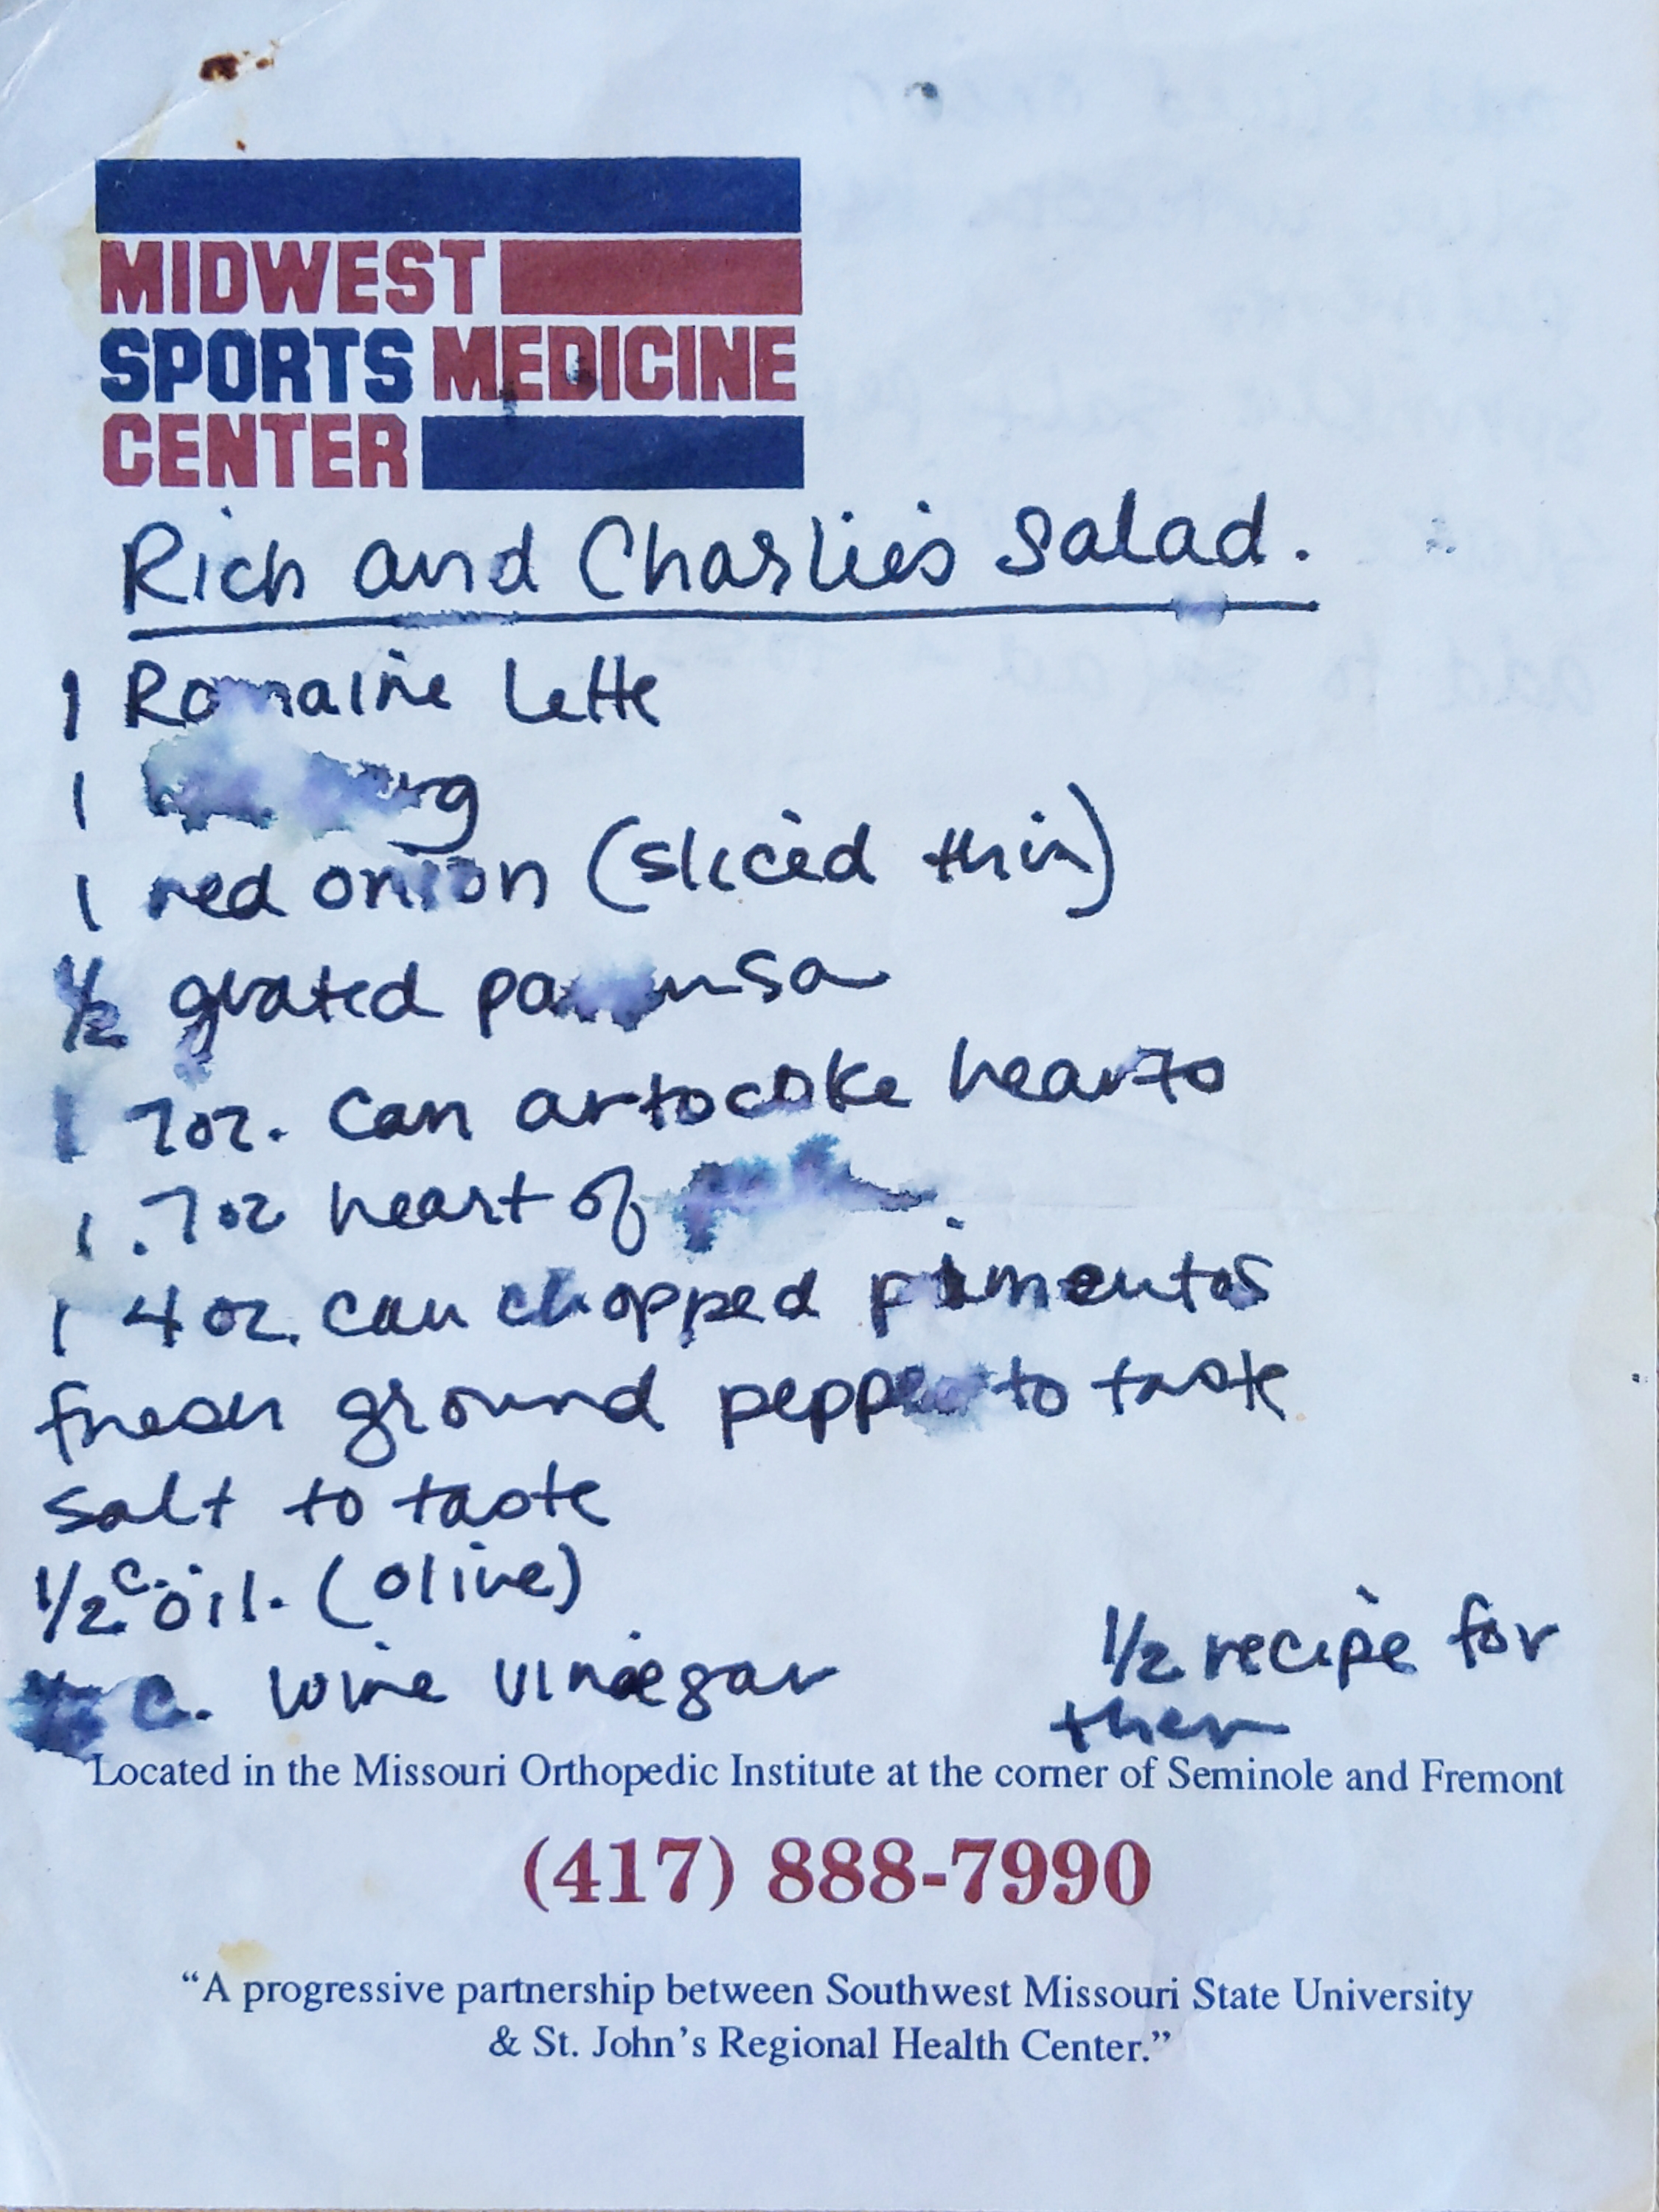 MIDWEST
SPORTS MEDICINE
CENTER
Rich and Charlie's Salad.
1 Romaine Lette
1
1 red onion (sliced thin)
1/2 grated parmesa
1 7oz. can artocoke hearts
1 . 7oz heart of
1 4 oz. can chopped pimentos
fresh ground pepper to taste
salt to taste
1/2 c. oil. (olive)
c. wine vinegar
1/2 recipe for
then
Located in the Missouri Orthopedic Institute at the corner of Seminole and Fremont
(417) 888-7990
“A progressive partnership between Southwest Missouri State University
& St. John's Regional Health Center.”